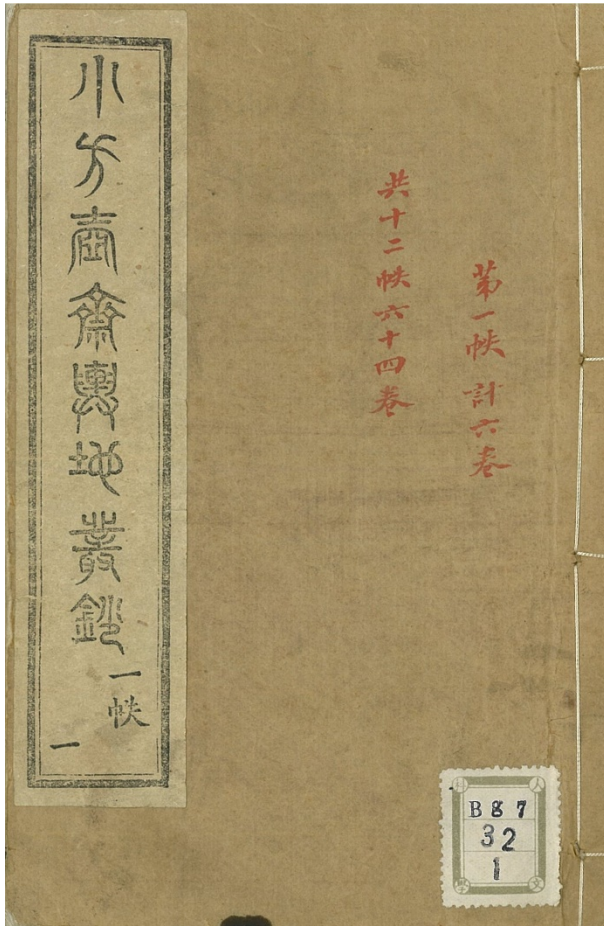 第一帙計六卷
共十二帙六十四卷
小方壺齋輿地叢鈔
一帙
一
B87
32
1